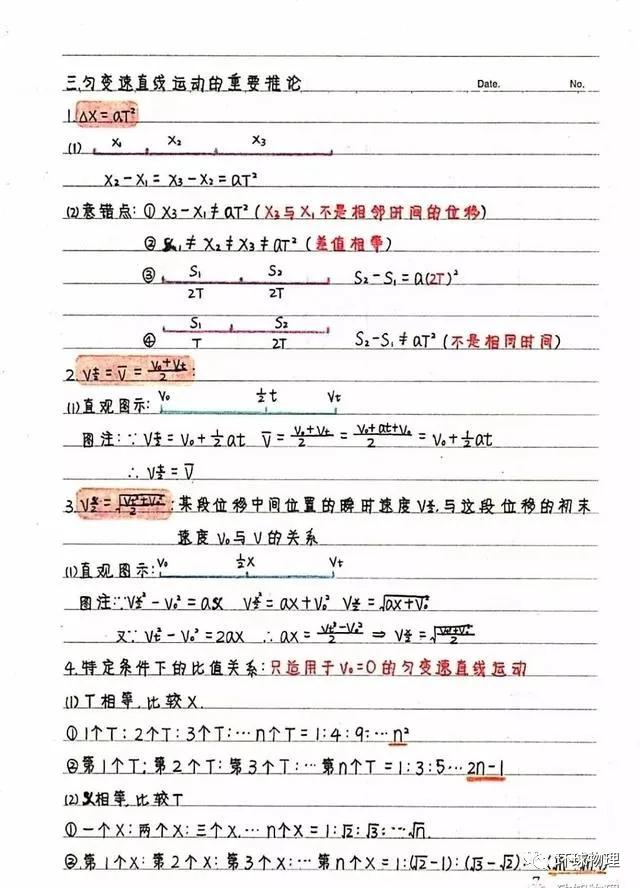 三.匀变速直线运动的重要推论 Date. No.
1. ΔX = aT²
(1) X₁ X₂ X₃
X₂ - X₁ = X₃ - X₂ = aT²
(2) 意错点: ① X₃ - X₁ ≠ aT² (X₂与X₁不是相邻时间的位移)
② X₁ ≠ X₂ ≠ X₃ ≠ aT² (差值相等)
③ S₁ S₂ S₂ - S₁ = a(2T)²
2T 2T
④ S₁ S₂ S₂ - S₁ ≠ aT² (不是相同时间)
T 2T
2. V_{t/2} = V̅ = (V₀+Vt)/2 :
(1) 直观图示: V₀ ½t Vt
图注: ∵ V_{t/2} = V₀ + ½at V̅ = (V₀+Vt)/2 = (V₀+at+V₀)/2 = V₀ + ½at
∴ V_{t/2} = V̅
3. V_{x/2} = √((Vt²+V₀²)/2) : 某段位移中间位置的瞬时速度V_{x/2},与这段位移的初末
速度V₀与V的关系
(1) 直观图示: V₀ ½X Vt
图注: ∵ V_{x/2}² - V₀² = aX V_{x/2}² = aX + V₀² V_{x/2} = √(aX + V₀²)
又∵ Vt² - V₀² = 2aX ∴ aX = (Vt² - V₀²)/2 ⇒ V_{x/2} = √((Vt²+V₀²)/2)
4. 特定条件下的比值关系: 只适用于V₀=0的匀变速直线运动
(1) T相等, 比较X.
① 1个T : 2个T : 3个T : … n个T = 1 : 4 : 9 : … n²
② 第1个T ; 第2个T : 第3个T : … 第n个T = 1 : 3 : 5 … 2n-1
(2) X相等, 比较T
① 一个X : 两个X : 三个X, … n个X = 1 : √2 : √3 : … √n.
②. 第1个X : 第2个X : 第3个X : … 第n个X = 1 : (√2-1) : (√3-√2)
环球物理
7